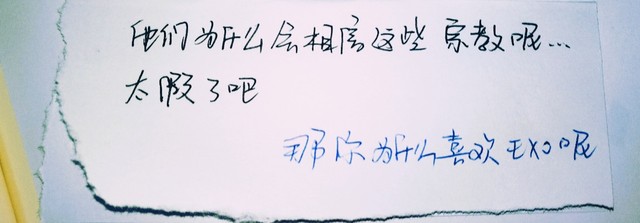 他们为什么会相信这些宗教呢...
太假了吧
那你为什么喜欢EXO呢